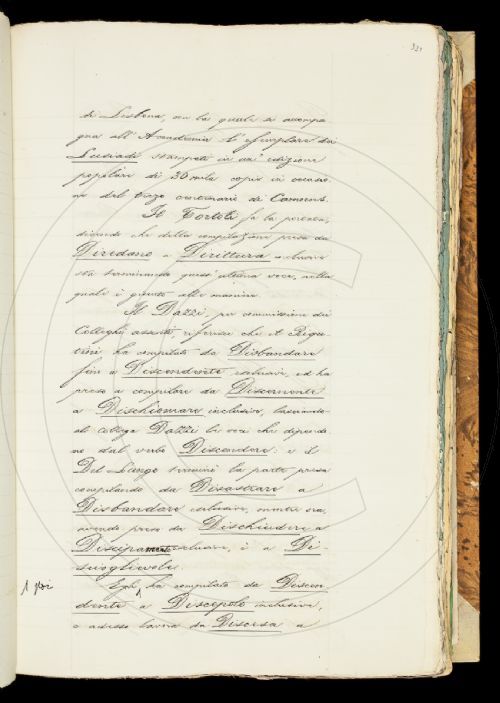 321
di Lisbona, con la quale si accompa
gna all'Accademia l'esemplare dei
Lusiadi stampati in un'edizione
popolare di 30 mila copie in occasio
ne del terzo centenario di Camoens.
Il Tortoli fa la presenza,
dicendo che della compilazione presa da
Diredano a Dirittura esclusive
sta terminando quest'ultima voce, nella
quale è giunto alle maniere.
Il Dazzi, per commissione dei
Colleghi assenti, riferisce che il Rigu
tini ha compilato da Disbandare
fino a Discendente esclusive, ed ha
preso a compilare da Discernente
a Dischiomare inclusive, lasciando
al collega Dazzi le voci che dipendo
no dal verbo Discendere: e il
Del Lungo terminò la parte presa
compilando da Disastrare a
Disbandare esclusive, mentre ora,
avendo preso da Dischiudere a
esclusive, è a Di
svoglievole.
1 poi
Egli ha compilato da Discen
dente a Discepolo inclusive,
e adesso lavora da Discesa a